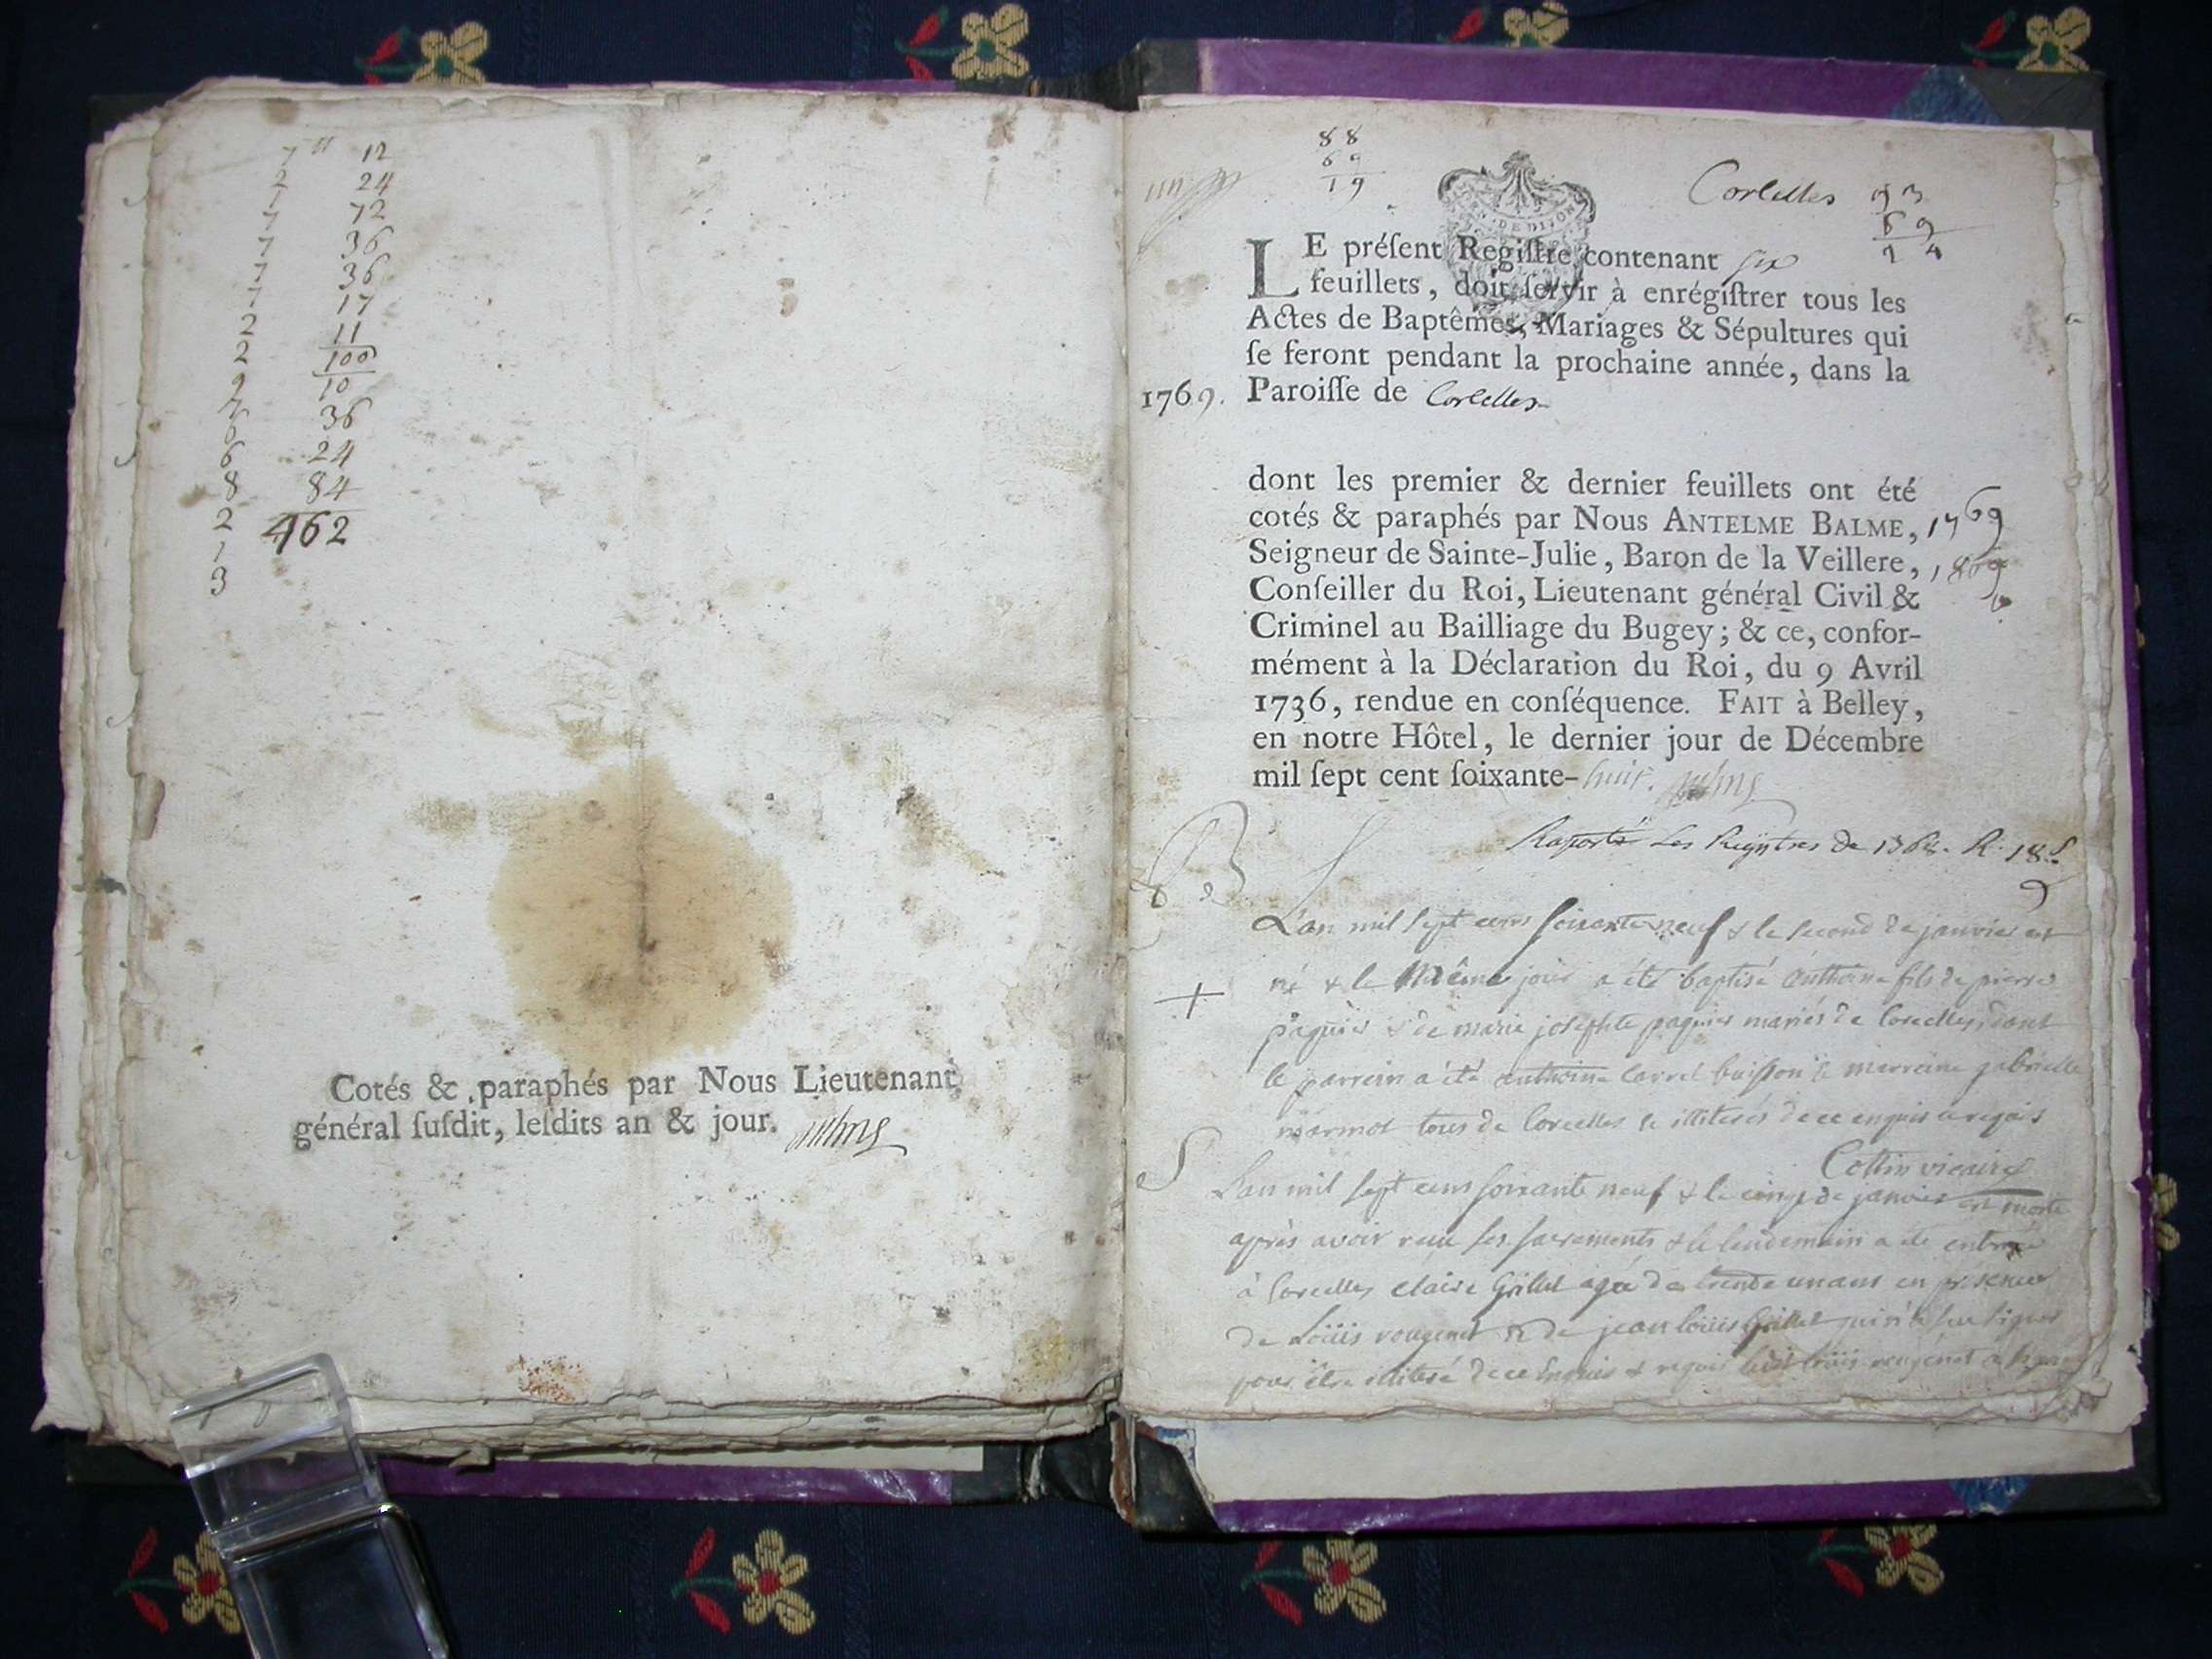 7 " 12
24
72
36
36
17
11
100
10
36
24
84
462
2
2
6
8
2
1
3
Cotés & paraphés par Nous Lieutenant
général ſuſdit, leſdits an & jour.
88
69
19
Corcelles
93
69
24
LE préſent Regiſtre contenant six
feuillets, doit ſervir à enrégiſtrer tous les
Actes de Baptêmes, Mariages & Sépultures qui
ſe feront pendant la prochaine année, dans la
1769. Paroiſſe de Corcelles
dont les premier & dernier feuillets ont été
cotés & paraphés par Nous ANTELME BALME, 1769
Seigneur de Sainte-Julie, Baron de la Veillere, 1869
Conſeiller du Roi, Lieutenant général Civil &
Criminel au Bailliage du Bugey; & ce, confor-
mément à la Déclaration du Roi, du 9 Avril
1736, rendue en conſéquence. FAIT à Belley,
en notre Hôtel, le dernier jour de Décembre
mil ſept cent ſoixante-huit.
Raporté Les Registres de 1768. R.
B
L'an mil sept cens soixante neuf & le second de janvier est
né & le même jour a été baptisé anthoine fils de pierre
paguier & de marie josephte paguier mariés de Corcelles, dont
le parrein a été anthoine Carrel buisson & marreine gabrielle
marmot tous de Corcelles & illiterés de ce enquis &
Collin vicaire
S
L'an mil sept cens soixante neuf & le cinq de janvier est morte
après avoir reçu ses sacrements & le lendemain a été enterrée
à Corcelles claire Grillet agée de trente un ans en présence
de Loüis rougemet & de jean loüis Grillet qui n'a sçu signer
pour être illiteré de ce enquis & requis loüis rougemet a